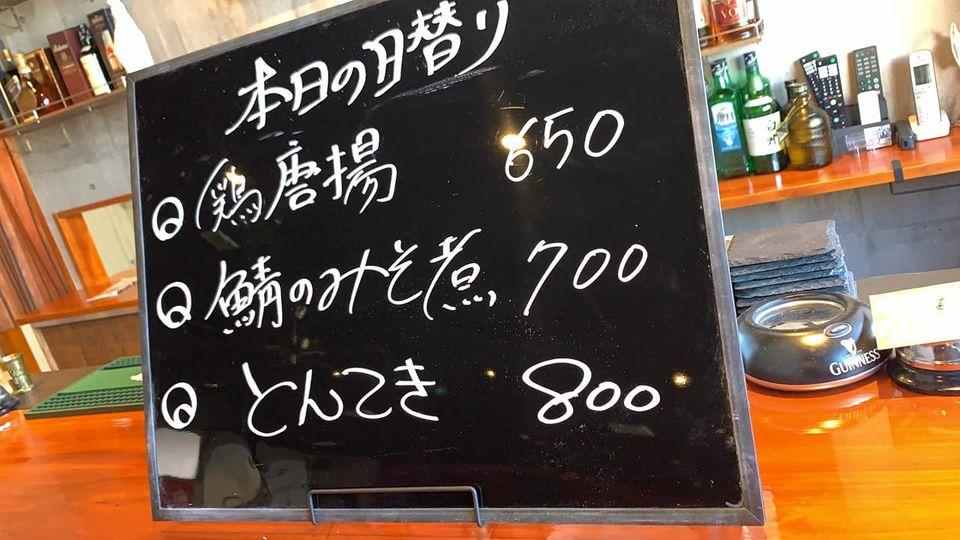 本日の日替り
○鶏唐揚 650
○鯖のみそ煮 700
○とんてき 800
GUINNESS